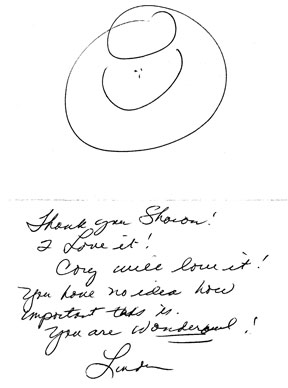 Thank you Sharon!
I Love it!
Cory will love it!
You have no idea how
important this is.
You are wonderful!
Linda